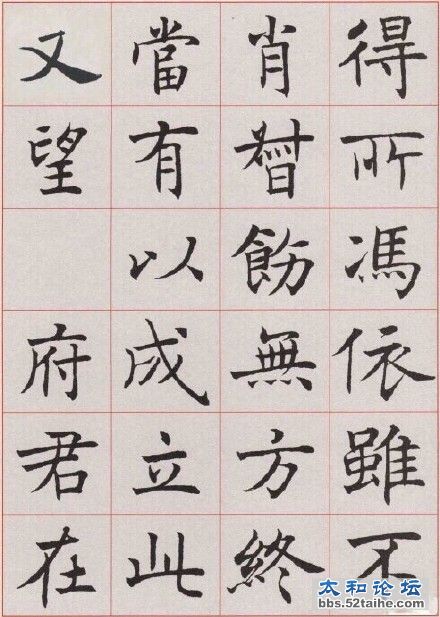 得所馮依雖不
肖督飭無方終
當有以成立此
又望 府君在
太和论坛
bbs.52taihe.com